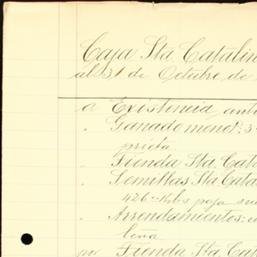 Caja Sta Catalin
al 31 de Octubre de
a Existencia ant
" Ganado menor: 3
prieta
" Tienda Sta Cat
" Semillas Sta Cata
426 kilos paja
" Arrendamientos:
leña
por Tienda Sta Cat